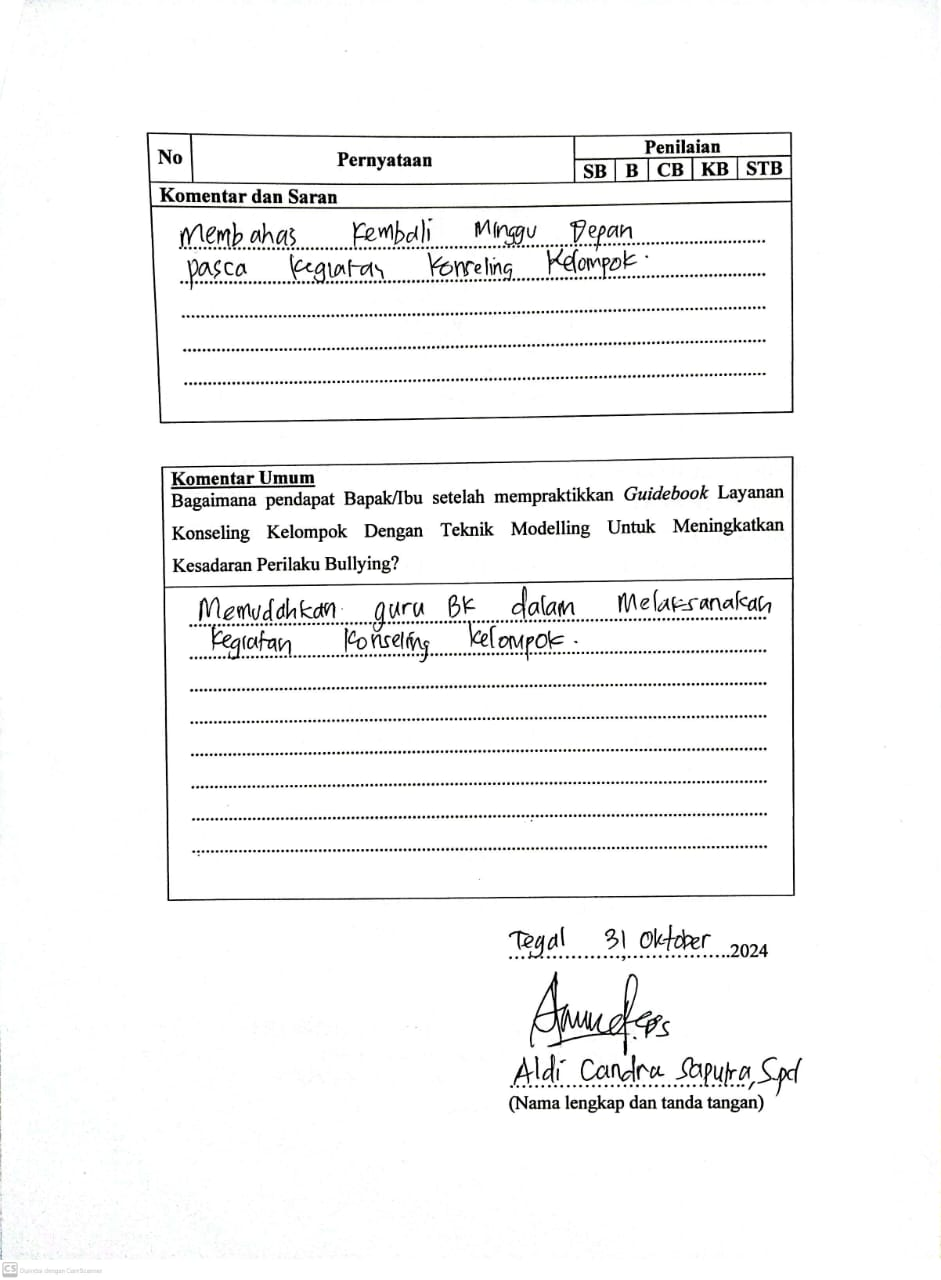 No Pernyataan Penilaian
SB B CB KB STB
Komentar dan Saran
Membahas Kembali Minggu Depan
pasca kegiatan Konseling Kelompok.
Komentar Umum
Bagaimana pendapat Bapak/Ibu setelah mempraktikkan Guidebook Layanan
Konseling Kelompok Dengan Teknik Modelling Untuk Meningkatkan
Kesadaran Perilaku Bullying?
Memudahkan guru BK dalam Melaksanakan
Kegiatan Konseling Kelompok.
Tegal 31 Oktober 2024
Aldi Candra Saputra, S.pd
(Nama lengkap dan tanda tangan)
CS Dipindai dengan CamScanner